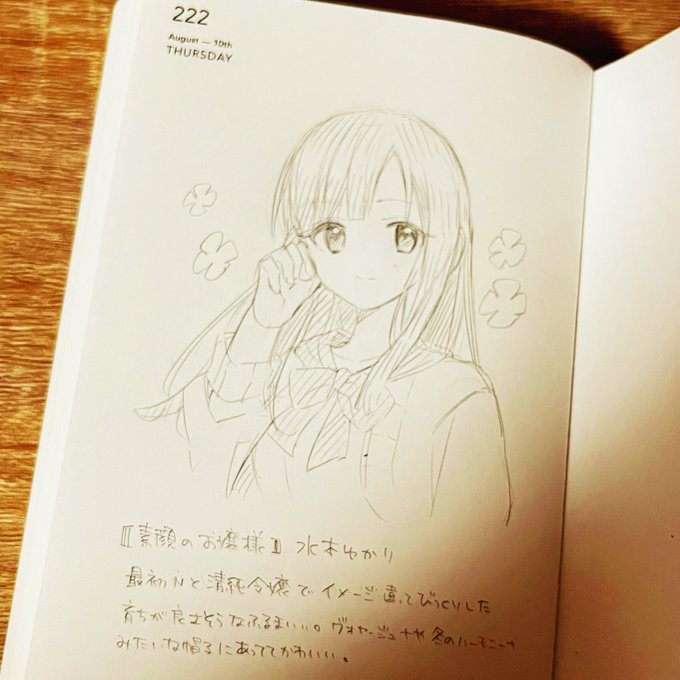 222
August — 10th
THURSDAY
[素顔のお嬢様] 水本ゆかり
最初Nと清純令嬢でイメージ違ってびっくりした
育ちが良さそうなふるまいいい。ヴォヤージュや冬のハーモニー
みたいな帽子にあっててかわいい。